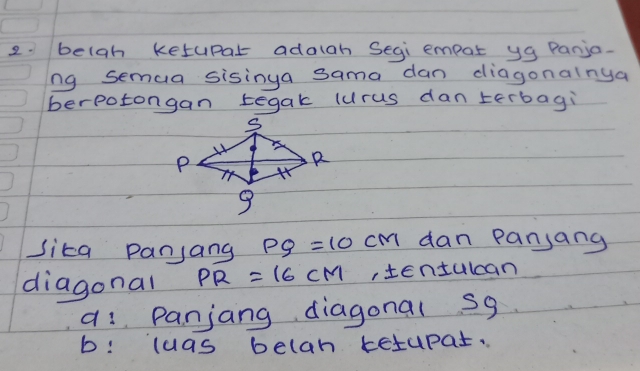 2. belah ketupat adalah segi empat yg Panja-
ng semua sisinya sama dan diagonalnya
berpotongan tegak lurus dan terbagi
S
P R
Q
Jika Panjang PQ = 10 CM dan Panjang
diagonal PR = 16 CM, tentukan
a: Panjang diagonal SQ
b: luas belah ketupat.